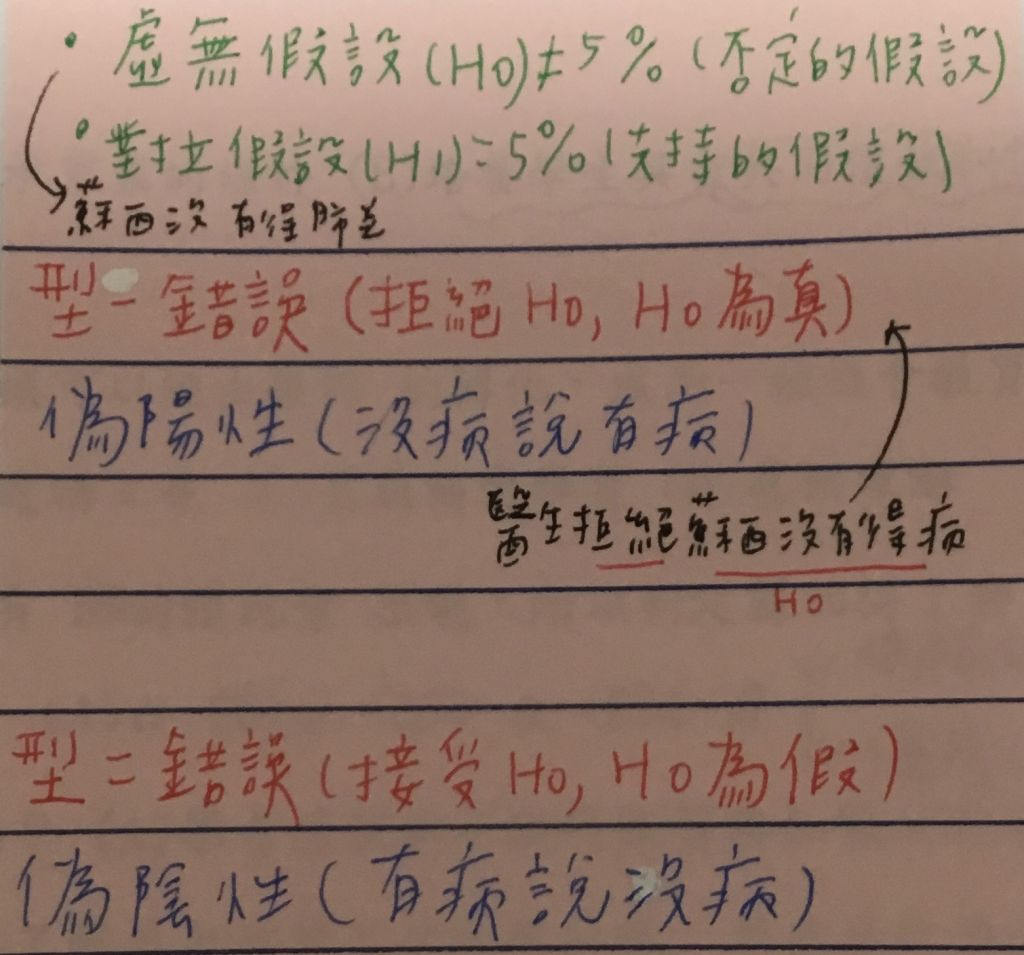 • 虛無假設(H0)≠5%(否定的假設)
• 對立假設(H1)=5%(支持的假設)
蘇西沒有得肺炎
型一錯誤(拒絕H0, H0為真)
偽陽性(沒病說有病)
醫生拒絕蘇西沒有得病
H0
型二錯誤(接受H0, H0為假)
偽陰性(有病說沒病)